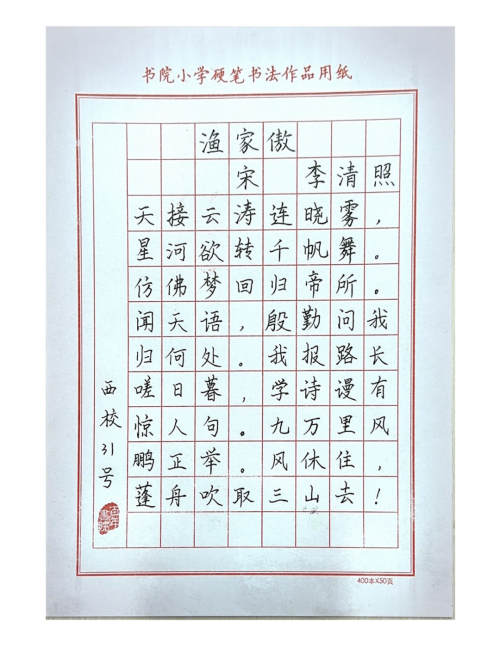 书院小学硬笔书法作品用纸
渔家傲
宋 李清照
天接云涛连晓雾，
星河欲转千帆舞。
仿佛梦回归帝所。
闻天语，殷勤问我
归何处。我报路长
嗟日暮，学诗谩有
惊人句。九万里风
鹏正举。风休住，
蓬舟吹取三山去！
西校31号
400本X50页